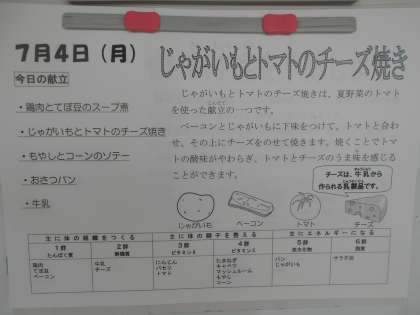 7月4日（月）
じゃがいもとトマトのチーズ焼き
今日の献立
・鶏肉とてぼ豆のスープ煮
・じゃがいもとトマトのチーズ焼き
・もやしとコーンのソテー
・おさつパン
・牛乳
じゃがいもとトマトのチーズ焼きは、夏野菜のトマト
を使った献立の一つです。
ベーコンとじゃがいもに下味をつけて、トマトと合わ
せ、その上にチーズをのせて焼きます。焼くことでトマ
トの酸味がやわらぎ、トマトとチーズのうま味を感じる
ことができます。
チーズは、牛乳から
作られる乳製品です。
じゃがいも
ベーコン
トマト
チーズ
主に体の組織をつくる
主に体の調子を整える
主にエネルギーになる
1群
たんぱく質
2群
無機質
3群
ビタミンA
4群
ビタミンC
5群
炭水化物
6群
脂質
鶏肉
てぼ豆
ベーコン
牛乳
チーズ
にんじん
パセリ
トマト
たまねぎ
キャベツ
マッシュルーム
もやし
コーン
パン
じゃがいも
サラダ油